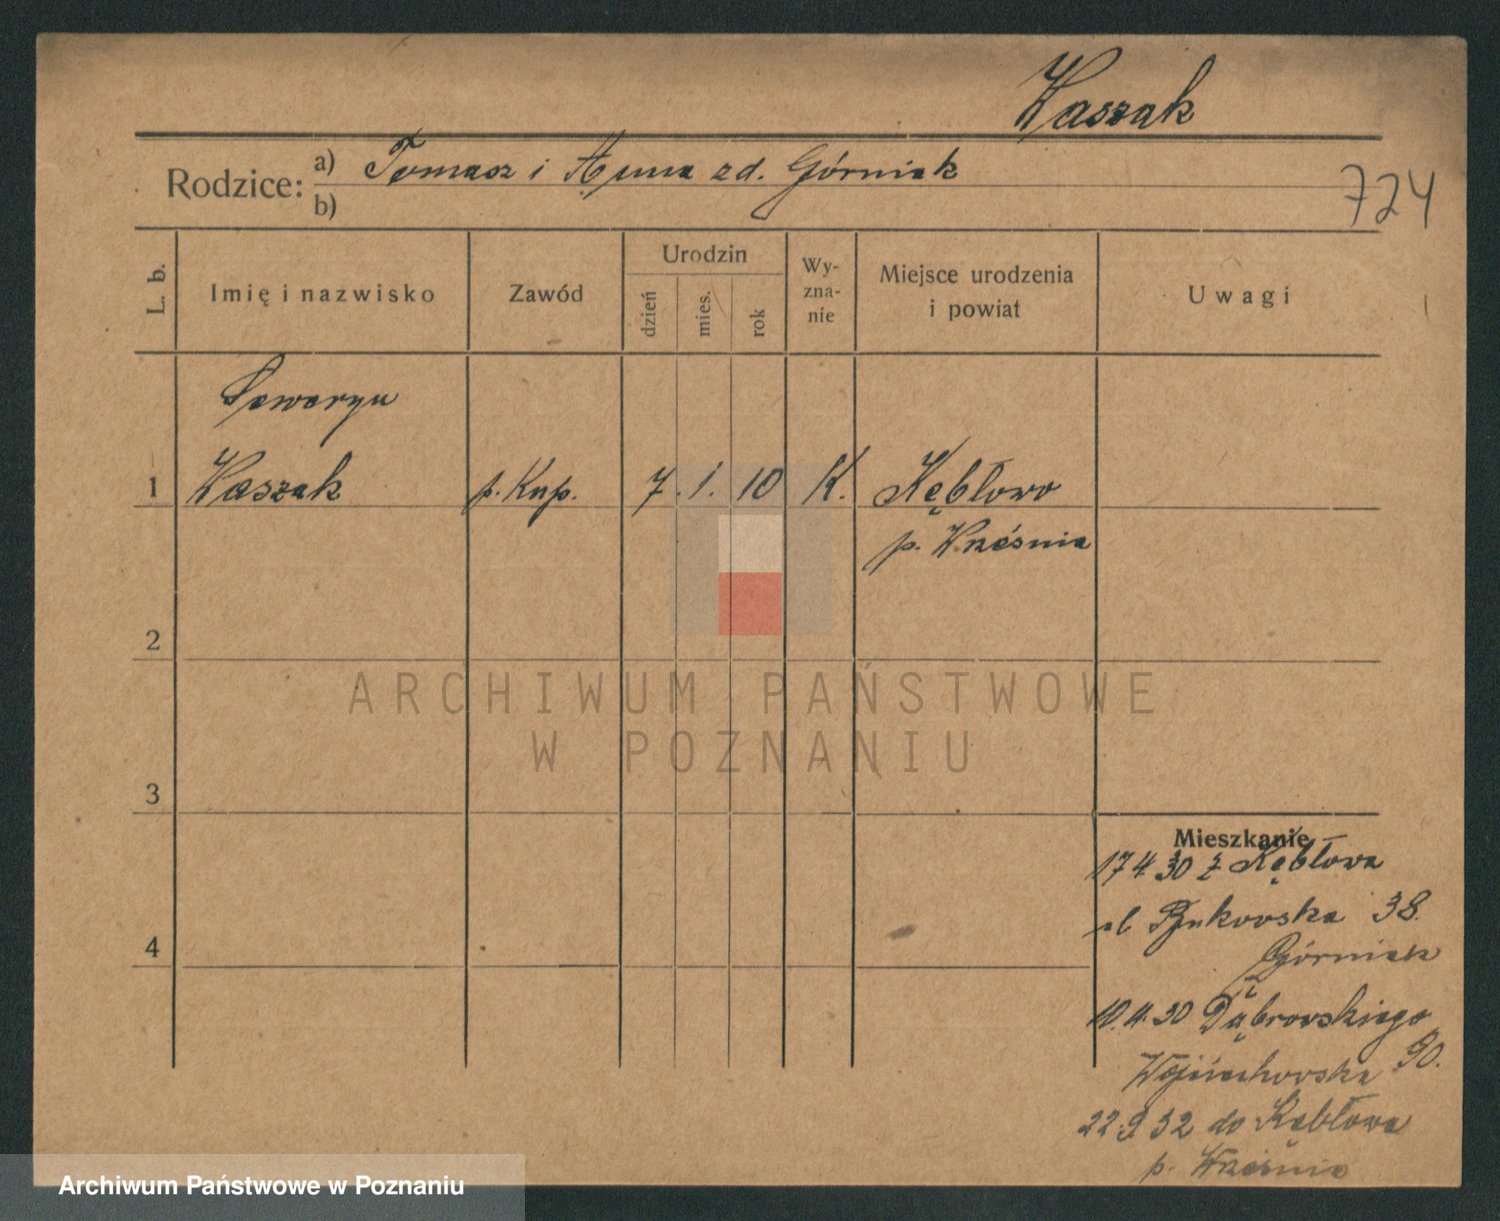 Waszak
Rodzice: a) Tomasz i Anna zd. Górniak
b)
724
L. b.
Imię i nazwisko
Zawód
Urodzin
dzień
mies.
rok
Wy-
zna-
nie
Miejsce urodzenia
i powiat
Uwagi
Seweryn
1 Waszak p. Kup. 7. 1. 10 K. Kębłowo
p. Września
2
3
4
Mieszkanie
17 4 30 z Kębłowa
ul Bukowska 38.
Górniak
10.4.30 Dąbrowskiego
90.
Wojciechowska
22.9 32 do Kębłowa
p. Września
ARCHIWUM PAŃSTWOWE
W POZNANIU
Archiwum Państwowe w Poznaniu